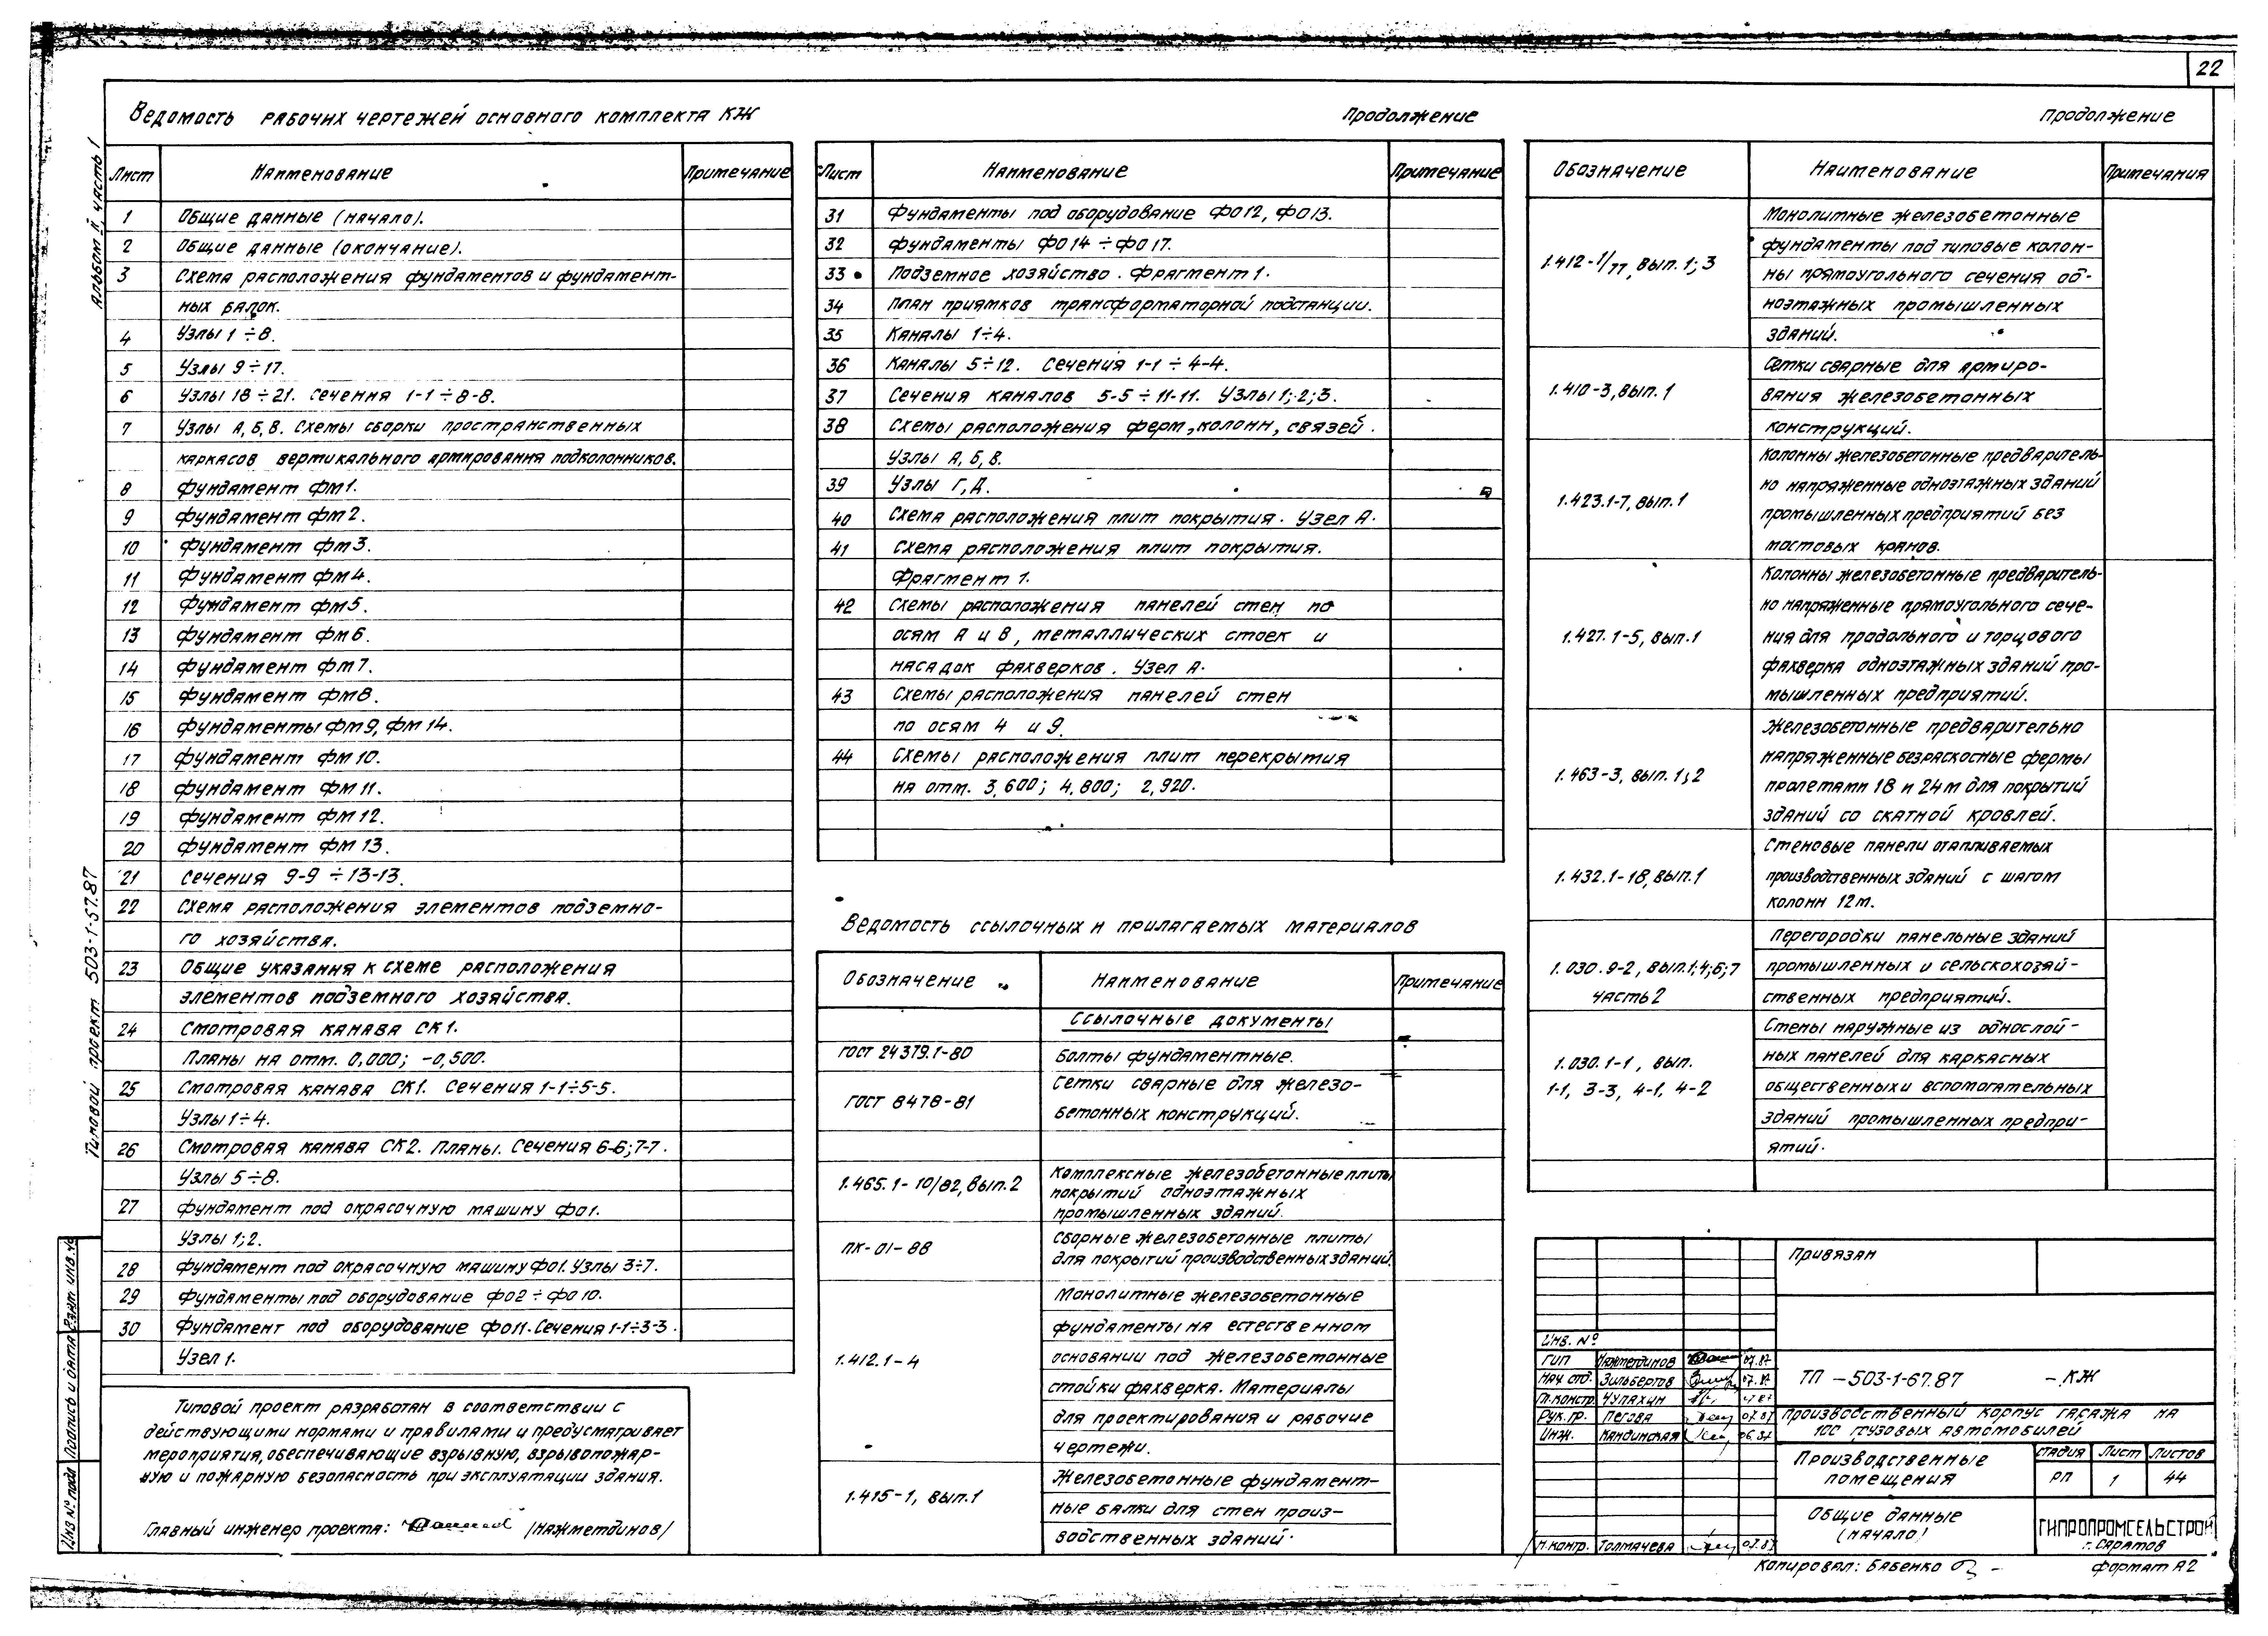 22
Альбом II, часть 1
Типовой проект 503-1-67.87
Ведомость рабочих чертежей основного комплекта КЖ
Лист Наименование Примечание
1 Общие данные (начало).
2 Общие данные (окончание).
3 Схема расположения фундаментов и фундамент-
ных балок.
4 Узлы 1÷8.
5 Узлы 9÷17.
6 Узлы 18÷21. Сечения 1-1÷8-8.
7 Узлы А, Б, В. Схемы сборки пространственных
каркасов вертикального армирования подколонников.
8 Фундамент Фм1.
9 Фундамент Фм2.
10 Фундамент Фм3.
11 Фундамент Фм4.
12 Фундамент Фм5.
13 Фундамент Фм6.
14 Фундамент Фм7.
15 Фундамент Фм8.
16 Фундаменты Фм9, Фм14.
17 Фундамент Фм10.
18 Фундамент Фм11.
19 Фундамент Фм12.
20 Фундамент Фм13.
21 Сечения 9-9÷13-13.
22 Схема расположения элементов подземно-
го хозяйства.
23 Общие указания к схеме расположения
элементов подземного хозяйства.
24 Смотровая канава СК1.
Планы на отм. 0,000; -0,500.
25 Смотровая канава СК1. Сечения 1-1÷5-5.
Узлы 1÷4.
26 Смотровая канава СК2. Планы. Сечения 6-6; 7-7.
Узлы 5÷8.
27 Фундамент под окрасочную машину Фо1.
Узлы 1; 2.
28 Фундамент под окрасочную машину Фо1. Узлы 3÷7.
29 Фундаменты под оборудование Фо2÷Фо10.
30 Фундамент под оборудование Фо11. Сечения 1-1÷3-3.
Узел 1.
Типовой проект разработан в соответствии с
действующими нормами и правилами и предусматривает
мероприятия, обеспечивающие взрывную, взрывопожар-
ную и пожарную безопасность при эксплуатации здания.
Главный инженер проекта: /Нажметдинов/
Продолжение
Лист Наименование Примечание
31 Фундаменты под оборудование Фо12, Фо13.
32 Фундаменты Фо14÷Фо17.
33 Подземное хозяйство. Фрагмент 1.
34 План приямков трансформаторной подстанции.
35 Каналы 1÷4.
36 Каналы 5÷12. Сечения 1-1÷4-4.
37 Сечения каналов 5-5÷11-11. Узлы 1; 2; 3.
38 Схемы расположения ферм, колонн, связей.
Узлы А, Б, В.
39 Узлы Г, Д.
40 Схема расположения плит покрытия. Узел А.
41 Схема расположения плит покрытия.
Фрагмент 1.
42 Схемы расположения панелей стен по
осям А и В, металлических стоек и
насадок фахверков. Узел А.
43 Схемы расположения панелей стен
по осям 4 и 9.
44 Схемы расположения плит перекрытия
на отм. 3,600; 4,800; 2,920.
Ведомость ссылочных и прилагаемых материалов
Обозначение Наименование Примечание
Ссылочные документы
ГОСТ 24379.1-80 Болты фундаментные.
ГОСТ 8478-81 Сетки сварные для железо-
бетонных конструкций.
1.465.1-10/82, вып.2 Комплексные железобетонные плиты
покрытий одноэтажных
промышленных зданий.
ПК-01-88 Сборные железобетонные плиты
для покрытий производственных зданий.
1.412.1-4 Монолитные железобетонные
фундаменты на естественном
основании под железобетонные
стойки фахверка. Материалы
для проектирования и рабочие
чертежи.
1.415-1, вып.1 Железобетонные фундамент-
ные балки для стен произ-
водственных зданий.
Продолжение
Обозначение Наименование Примечания
1.412-1/77, вып. 1; 3 Монолитные железобетонные
фундаменты под типовые колон-
ны прямоугольного сечения од-
ноэтажных промышленных
зданий.
1.410-3, вып. 1 Сетки сварные для армиро-
вания железобетонных
конструкций.
1.423.1-7, вып. 1 Колонны железобетонные предваритель-
но напряженные одноэтажных зданий
промышленных предприятий без
мостовых кранов.
1.427.1-5, вып.1 Колонны железобетонные предваритель-
но напряженные прямоугольного сече-
ния для продольного и торцового
фахверка одноэтажных зданий про-
мышленных предприятий.
1.463-3, вып. 1; 2 Железобетонные предварительно
напряженные безраскосные фермы
пролетами 18 и 24м для покрытий
зданий со скатной кровлей.
1.432.1-18, вып.1 Стеновые панели отапливаемых
производственных зданий с шагом
колонн 12м.
1.030.9-2, вып.1;4;6;7 часть 2 Перегородки панельные зданий
промышленных и сельскохозяй-
ственных предприятий.
1.030.1-1, вып. 1-1, 3-3, 4-1, 4-2 Стены наружные из однослой-
ных панелей для каркасных
общественных и вспомогательных
зданий промышленных предпри-
ятий.
Привязан
Инв. №
ГИП Нажметдинов 07.87
Нач. отд. Зильбертов 07.87
Гл. констр. Чулахин 07.87
Рук. гр. Пегова 07.87
Инж. Кандинская 06.87
Н. контр. Толмачева 07.87
ТП -503-1-67.87 -КЖ
Производственный корпус гаража на
100 грузовых автомобилей
Производственные
помещения
Стадия Лист Листов
РП 1 44
Общие данные
(начало)
ГИПРОПРОМСЕЛЬСТРОЙ
г. Саратов
Копировал: Бабенко
Формат А2
Инв № подл Подпись и дата Взам инв. №